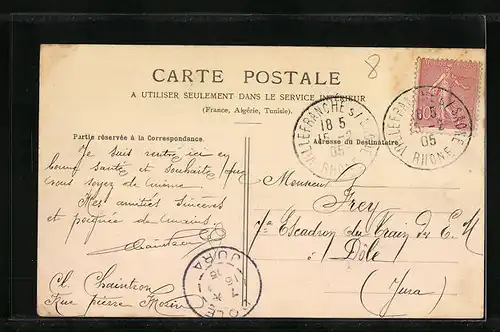 8
CARTE POSTALE
A UTILISER SEULEMENT DANS LE SERVICE INTÉRIEUR
(France, Algérie, Tunisie).
VILLEFRANCHE S/SAÔNE
18 5
15 -2
05
RHONE
VILLEFRANCHE S/SAÔNE
05
RHONE
Partie réservée à la Correspondance.
Adresse du Destinataire.
Je suis rentré ici en
bonne santé et souhaite que
vous soyez de même.
Mes amitiés sincères
et poignée de mains.
Chaintron
Cl. Chaintron
Rue pierre Morin
DOLE
JURA
Monsieur Frey
Escadron du Train des E. M
à Dôle
(Jura)